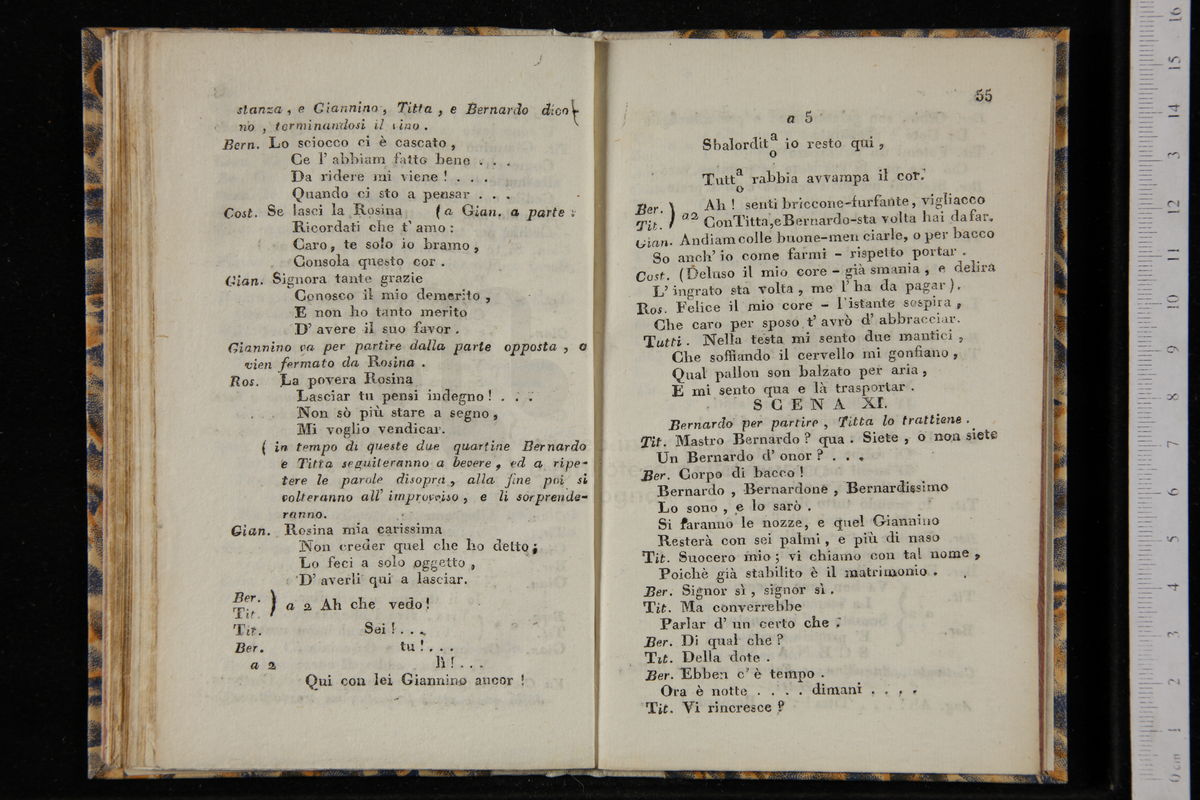 stanza , e Giannino , Titta , e Bernardo dico-
no , terminandosi il vino .
Bern. Lo sciocco ci è cascato ,
Ce l' abbiam fatto bene . . .
Da ridere mi viene ! . . .
Quando ci sto a pensar . . .
Cost. Se lasci la Rosina ( a Gian. a parte :
Ricordati che t' amo :
Caro , te solo io bramo ,
Consola questo cor .
Gian. Signora tante grazie
Conosco il mio demerito ,
E non ho tanto merito
D' avere il suo favor .
Giannino va per partire dalla parte opposta , e
vien fermato da Rosina .
Ros. La povera Rosina
Lasciar tu pensi indegno ! . . .
Non sò più stare a segno ,
Mi voglio vendicar.
( in tempo di queste due quartine Bernardo
e Titta seguiteranno a bevere , ed a ripe-
tere le parole disopra , alla fine poi si
volteranno all' improvviso , e li sorprende-
ranno.
Gian. Rosina mia carissima
Non creder quel che ho detto ;
Lo feci a solo oggetto ,
D' averli qui a lasciar.
Ber. )
Tit. ) a 2 Ah che vedo !
Tit. Sei ! . . .
Ber. tu ! . . .
a 2 lì ! . . .
Qui con lei Giannino ancor !
55
a 5
Sbalordit a/o io resto qui ,
Tutt a/o rabbia avvampa il cor.
Ber. ) Ah ! senti briccone-furfante , vigliacco
Tit. ) a2 ConTitta,eBernardo-sta volta hai da far.
Gian. Andiam colle buone-men ciarle, o per bacco
So anch' io come farmi - rispetto portar .
Cost. ( Deluso il mio core - già smania , e delira
L' ingrato sta volta , me l' ha da pagar ).
Ros. Felice il mio core - l'istante sospira ,
Che caro per sposo t' avrò d' abbracciar.
Tutti . Nella testa mi sento due mantici ,
Che soffiando il cervello mi gonfiano ,
Qual pallon son balzato per aria ,
E mi sento qua e là trasportar .
SCENA XI.
Bernardo per partire , Titta lo trattiene .
Tit. Mastro Bernardo ? qua . Siete , o non siete
Un Bernardo d' onor ? . . .
Ber. Corpo di bacco !
Bernardo , Bernardone , Bernardissimo
Lo sono , e lo sarò .
Si faranno le nozze, e quel Giannino
Resterà con sei palmi , e più di naso
Tit. Suocero mio ; vi chiamo con tal nome ,
Poichè già stabilito è il matrimonio .
Ber. Signor sì , signor sì .
Tit. Ma converrebbe
Parlar d' un certo che .
Ber. Di qual che ?
Tit. Della dote .
Ber. Ebben c' è tempo .
Ora è notte . . . . dimani . . . .
Tit. Vi rincresce ?
0 cm 1 2 3 4 5 6 7 8 9 10 11 12 13 14 15 16